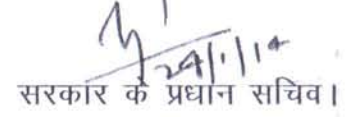 24/1/14
सरकार के प्रधान सचिव।